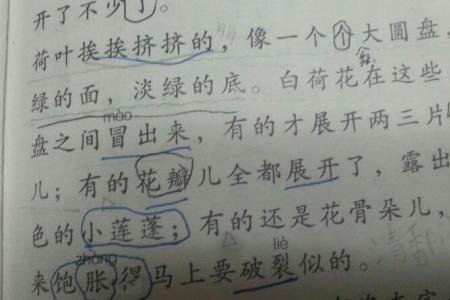 开了不少了。
荷叶挨挨挤挤的，像一个个大圆盘，
绿的面，淡绿的底。白荷花在这些
mào
盘之间冒出来，有的才展开两三片
儿；有的花瓣儿全都展开了，露出
色的小莲蓬；有的还是花骨朵儿，
zhàng liè
来饱胀得马上要破裂似的。